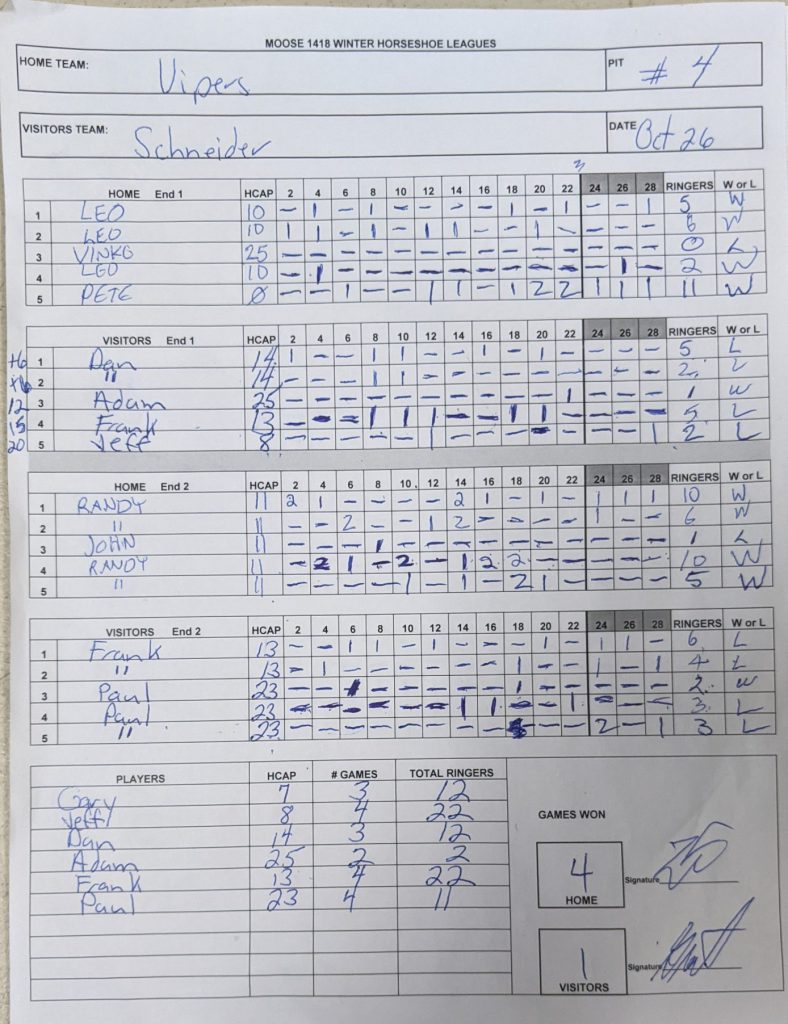 MOOSE 1418 WINTER HORSESHOE LEAGUES
HOME TEAM: Vipers PIT # 4
VISITORS TEAM: Schneider DATE Oct 26
3
HOME End 1 HCAP 2 4 6 8 10 12 14 16 18 20 22 24 26 28 RINGERS W or L
1 LEO 10 – 1 – 1 – – – – 1 – 1 – – 1 5 W
2 LEO 10 1 1 – 1 – 1 1 – – 1 – – – – 6 W
3 VINKO 25 – – – – – – – – – – – – – – 0 L
4 LEO 10 – 1 – – – – – – – – – – 1 – 2 W
5 PETE Ø – – 1 – – 1 1 – 1 2 2 1 1 1 11 W
VISITORS End 1 HCAP 2 4 6 8 10 12 14 16 18 20 22 24 26 28 RINGERS W or L
+6 1 Dan 14 1 – – 1 1 – – 1 – 1 – – – – 5 L
2 " 14 – – – 1 1 – – – – – – – – – 2 L
12 3 Adam 25 – – – – – – – – – – 1 – – – 1 W
15 4 Frank 13 – – – 1 1 1 – – 1 1 – – – – 5 L
20 5 Jeff 8 – – – – – 1 – – – – – – – 1 2 L
HOME End 2 HCAP 2 4 6 8 10 12 14 16 18 20 22 24 26 28 RINGERS W or L
1 RANDY 11 2 1 – – – – 2 1 – 1 – 1 1 1 10 W
2 " 11 – – 2 – – 1 2 – – – – 1 – – 6 W
3 JOHN 11 – – – 1 – – – – – – – – – – 1 L
4 RANDY 11 – 2 1 – 2 – 1 2 2 – – – – – 10 W
5 " 11 – – – – 1 – 1 – 2 1 – – – – 5 W
VISITORS End 2 HCAP 2 4 6 8 10 12 14 16 18 20 22 24 26 28 RINGERS W or L
1 Frank 13 – – 1 1 – 1 – – – 1 – 1 1 – 6 L
2 " 13 – 1 – – – – – – 1 – – 1 – 1 4 L
3 Paul 23 – – 1 – – – – – 1 – – – – – 2 W
4 Paul 23 – – – – – – 1 1 – – 1 – – – 3 L
5 " 23 – – – – – – – – – – – 2 – 1 3 L
PLAYERS HCAP # GAMES TOTAL RINGERS
Gary 7 3 12
Jeff 8 4 22
Dan 14 3 12
Adam 25 2 2
Frank 13 4 22
Paul 23 4 11
GAMES WON
4
HOME
Signature
1
VISITORS
Signature